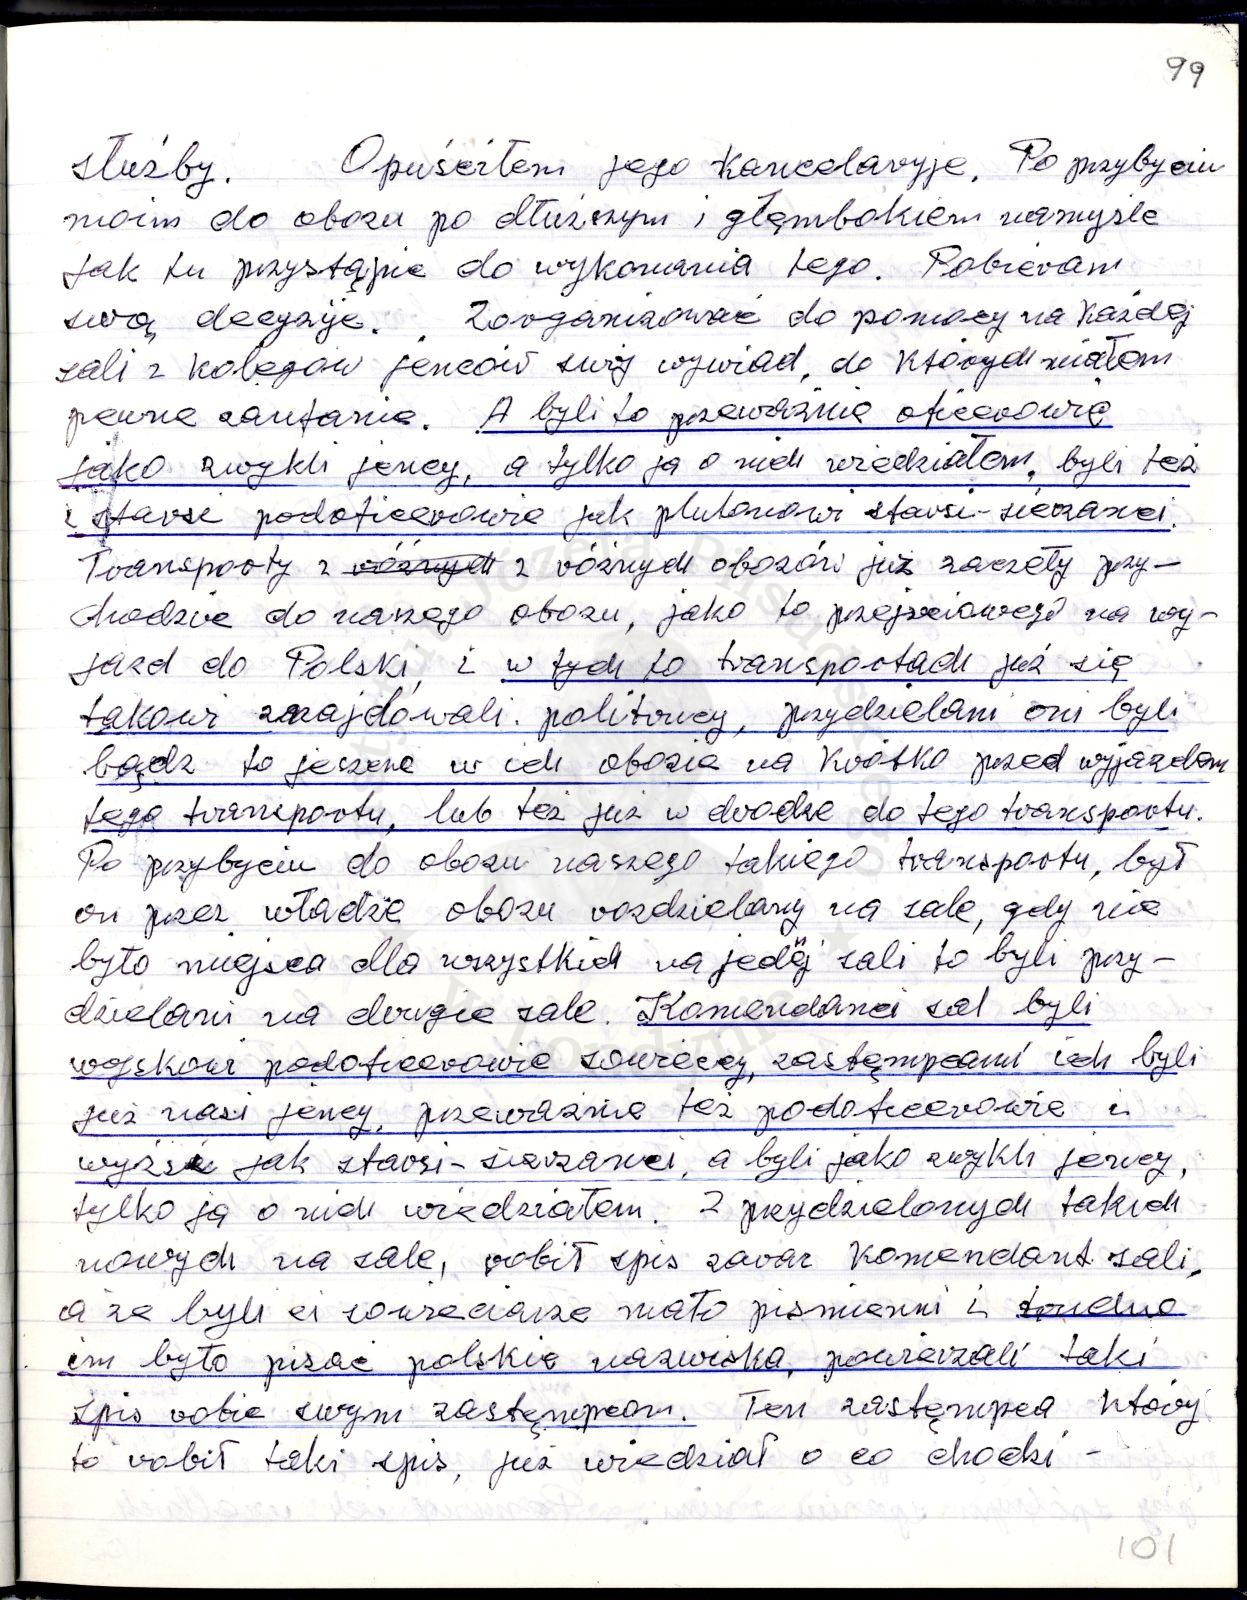 99
służby. Opuściłem jego kancelaryję. Po przybyciu
moim do obozu po dłuższym i głęmbokiem namyśle
jak tu przystąpić do wykonania tego. Pobieram
swą decyzyję. Zorganizować do pomocy na każdéj
sali z kolegów jeńców swój wywiad, do których miałem
pewne zaufanie. A byli to przeważnie oficerowie
jako zwykli jeńcy, a tylko ja o nich wiedziałem, byli też
i starsi podoficerowie jak plutonowi starsi-sierżanci.
Transporty z różnych z różnych obozów już zaczęły przy-
chodzić do naszego obozu, jako to przejściowego na wy-
jazd do Polski, i w tych to transportach już się
takowi znajdowali. politrucy, przydzielani oni byli
bądz to jeszcze w ich obozie na krótko przed wyjazdem
tego transportu, lub też już w drodze do tego transportu.
Po przybyciu do obozu naszego takiego transportu, był
on przez władzie obozu rozdzielany na sale, gdy nie
było miejsca dla wszystkich na jednéj sali to byli przy-
dzielani na drugie sale. Komendanci sal byli
wojskowi podoficerowie sowieccy, zastęmpcami ich byli
już nasi jeńcy, przeważnie też podoficerowie i
wyżsi jak starsi-sierżanci, a byli jako zwykli jeńcy,
tylko ja o nich wiedziałem. Z przydzielonych takich
nowych na sale, robił spis zaraz komendant sali,
a że byli ci sowieciarze mało pismienni i trudno
im było pisać polskie nazwiska, powierzali taki
spis robić swym zastęmpcom. Ten zastęmpca który
to robił taki spis, już wiedział o co chodzi-
101